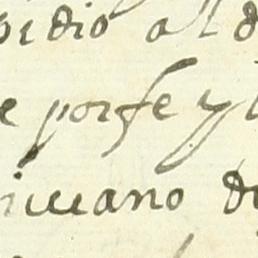 pidio al d
e porfe y
iuano do